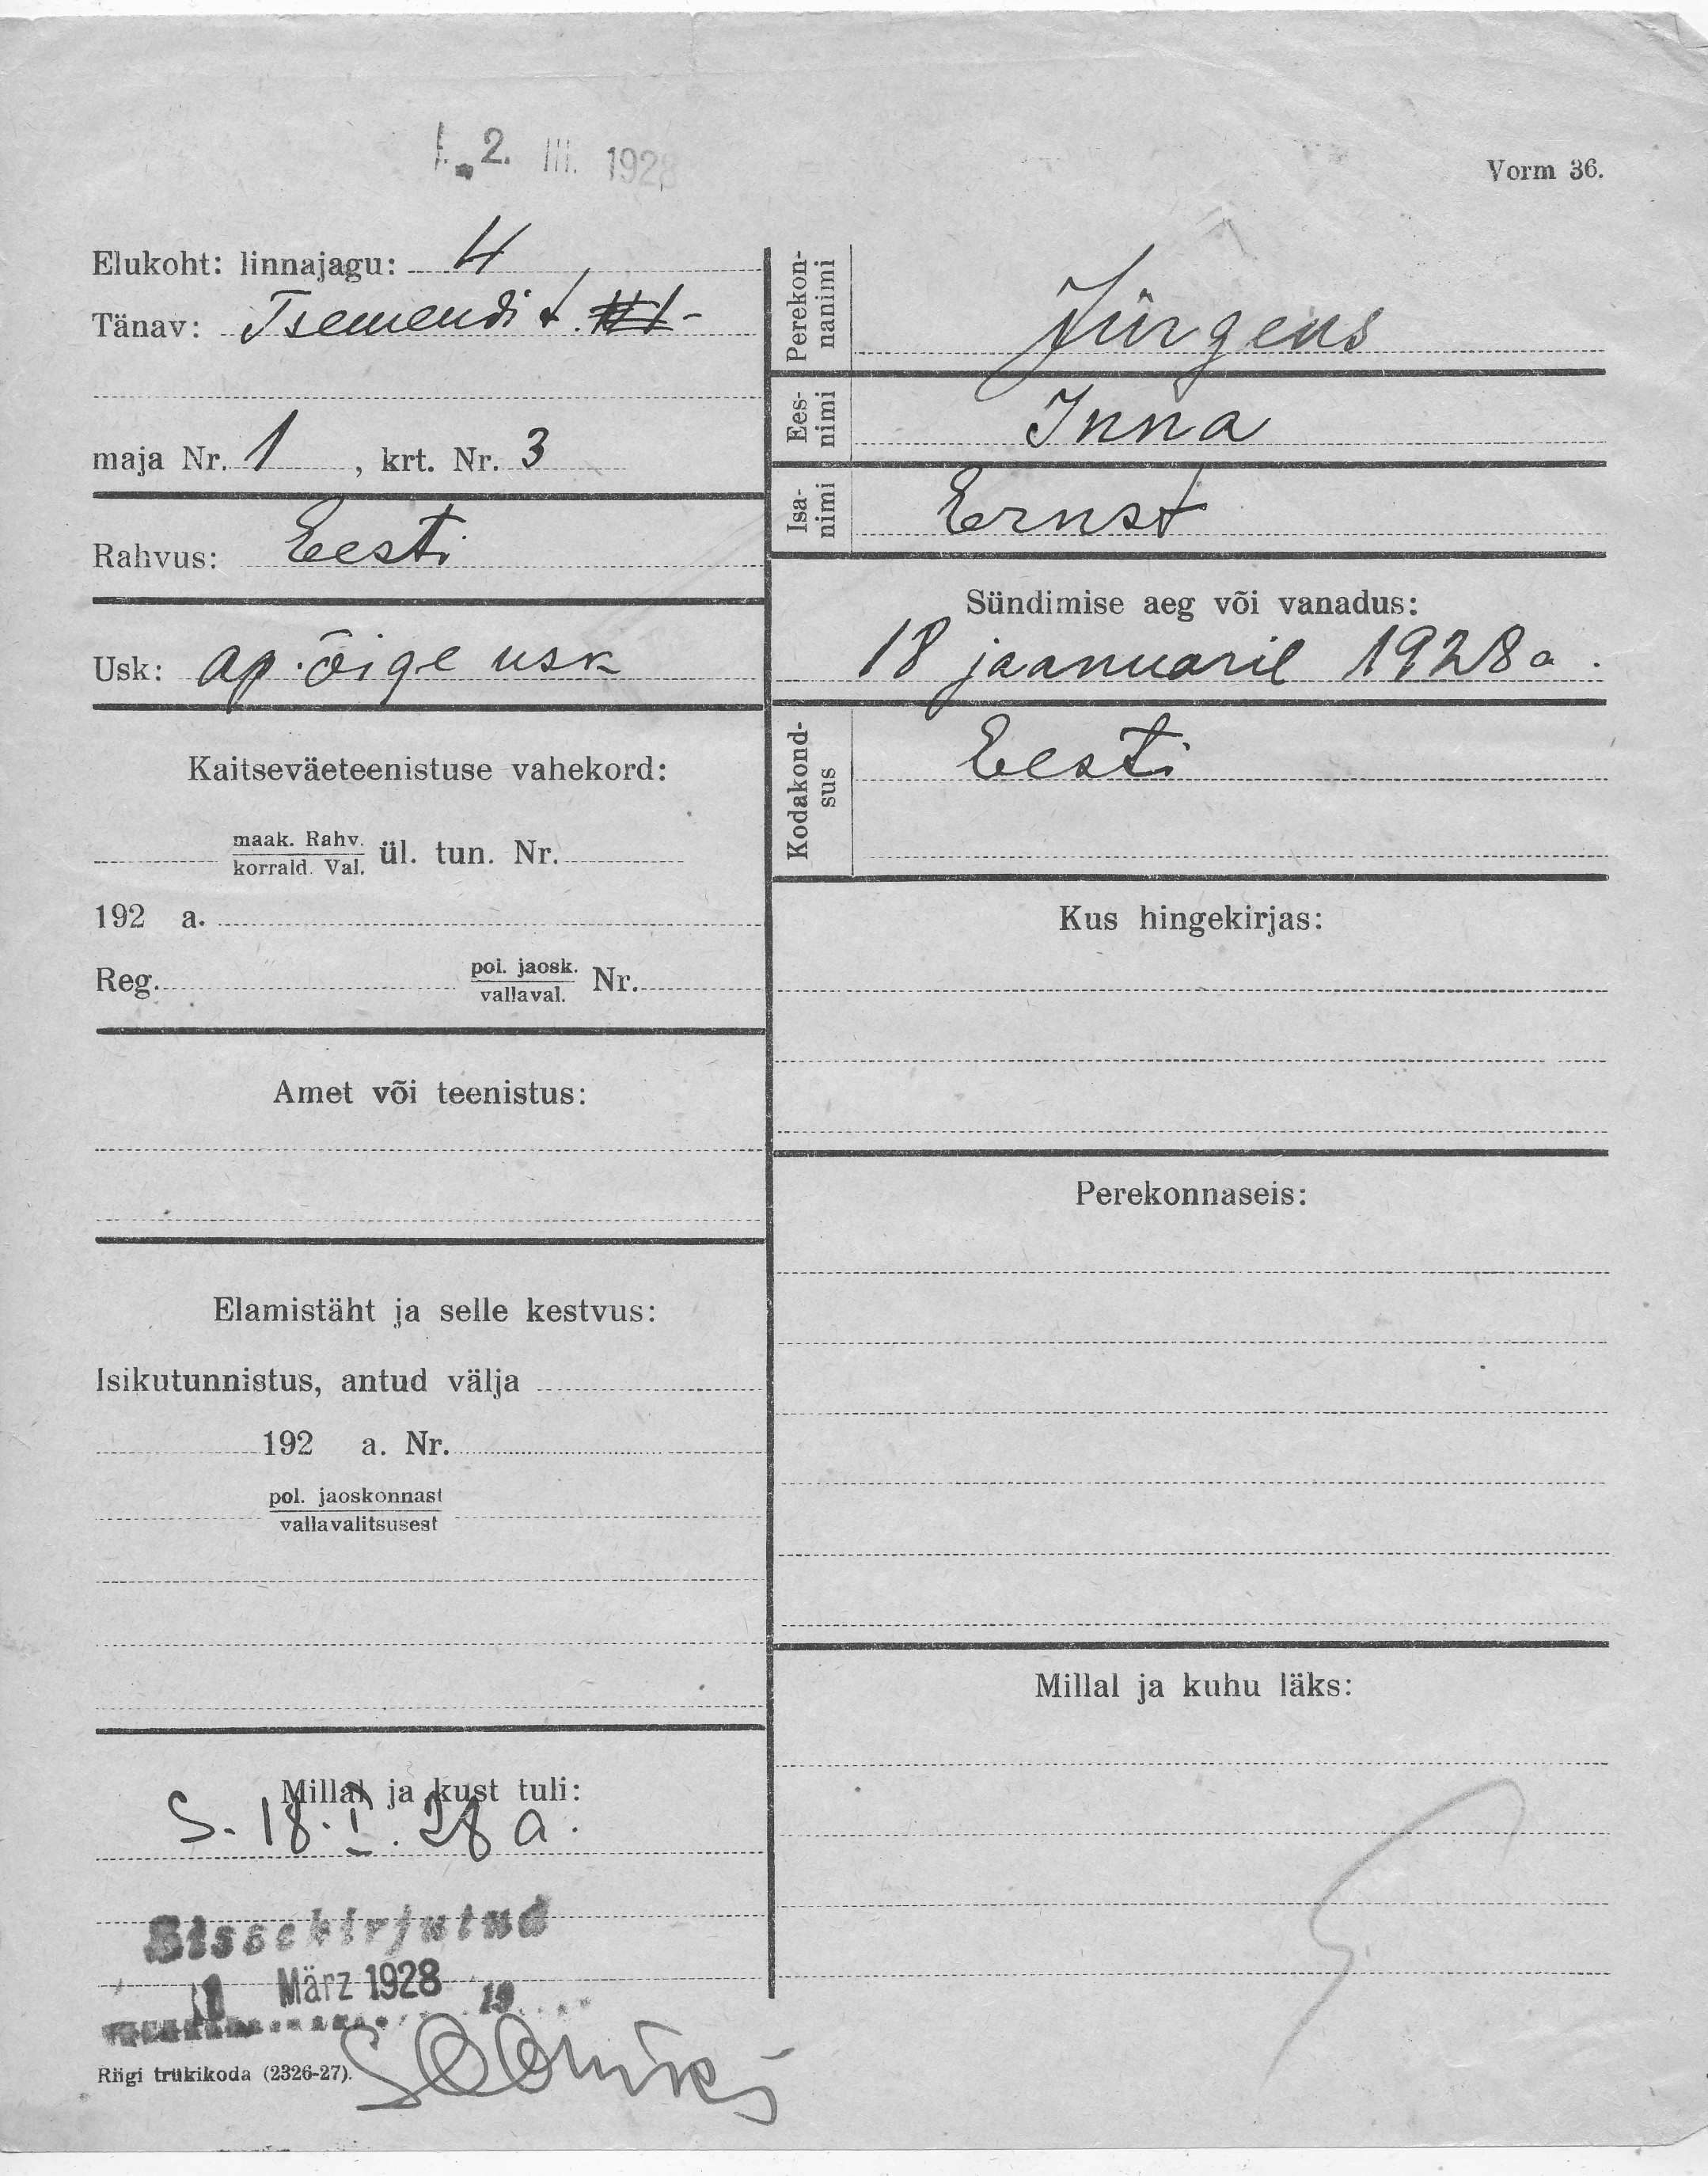 2. III. 1928
Vorm 36.
Elukoht: linnajagu: 4
Tänav: Tsemendi t.
maja Nr. 1, krt. Nr. 3
Rahvus: Eesti
Usk: ap. õige usk
Kaitseväeteenistuse vahekord:
maak. Rahv.
korrald. Val. ül. tun. Nr.
192 a.
Reg. pol. jaosk. Nr.
vallaval.
Amet või teenistus:
Elamistäht ja selle kestvus:
Isikutunnistus, antud välja
192 a. Nr.
pol. jaoskonnast
vallavalitsusest
Millal ja kust tuli:
S. 18. I. 28 a.
Sissekirjutud
März 1928 19
Riigi trükikoda (2326-27).
Perekon-
nanimi
Jürgens
Ees-
nimi
Inna
Isa-
nimi
Ernst
Sündimise aeg või vanadus:
18 jaanuaril 1928 a.
Kodakond-
sus
Eesti
Kus hingekirjas:
Perekonnaseis:
Millal ja kuhu läks: